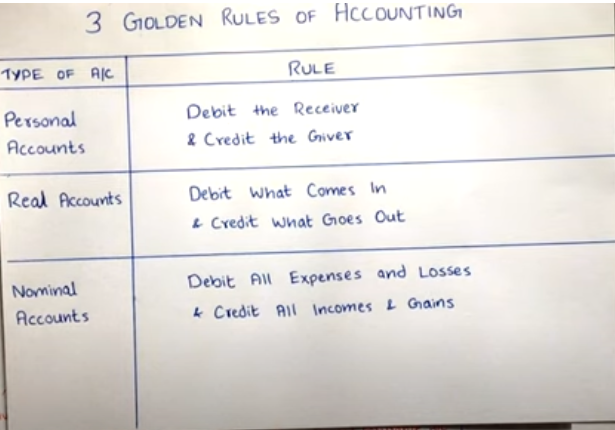 3 GOLDEN RULES OF ACCOUNTING
TYPE OF A/C
RULE
Personal
Accounts
Debit the Receiver
& Credit the Giver
Real Accounts
Debit What Comes In
& Credit What Goes Out
Nominal
Accounts
Debit All Expenses and Losses
& Credit All Incomes & Gains